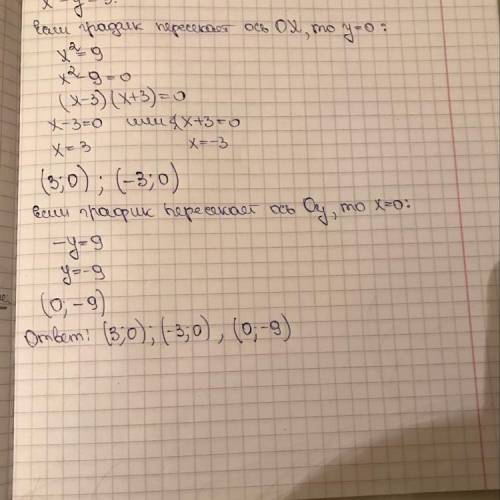 Если график пересекает ось OX, то y=0:
x²=9
x²-9=0
(x-3)(x+3)=0
x-3=0 или x+3=0
x=3 x=-3
(3;0); (-3;0)
Если график пересекает ось Oy, то x=0:
-y=9
y=-9
(0;-9)
Ответ: (3;0); (-3;0), (0;-9)